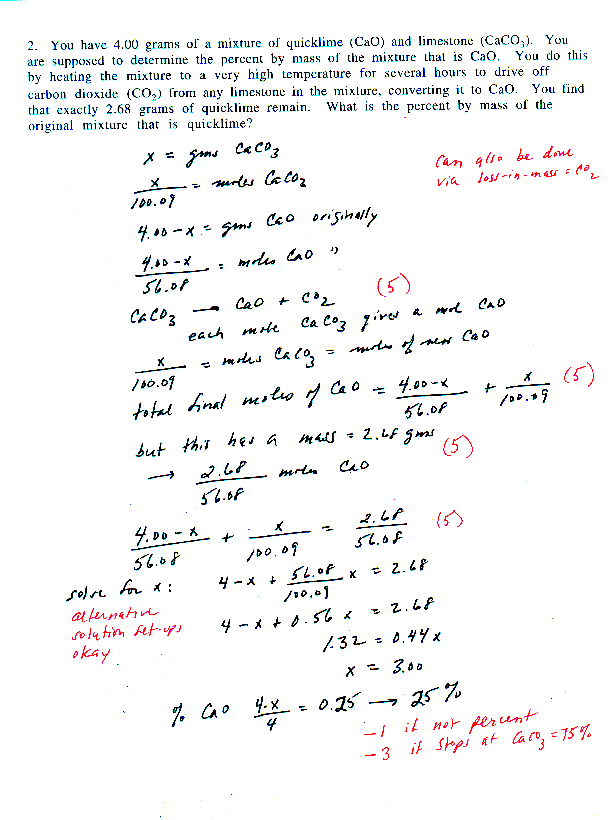 2. You have 4.00 grams of a mixture of quicklime (CaO) and limestone (CaCO₃). You
are supposed to determine the percent by mass of the mixture that is CaO. You do this
by heating the mixture to a very high temperature for several hours to drive off
carbon dioxide (CO₂) from any limestone in the mixture, converting it to CaO. You find
that exactly 2.68 grams of quicklime remain. What is the percent by mass of the
original mixture that is quicklime?
x = gms CaCO₃
Can also be done
via loss-in-mass = CO₂
x/100.09 = moles CaCO₂
4.00-x = gms CaO originally
4.00-x/56.08 = moles CaO "
CaCO₃ → CaO + CO₂ (5)
each mole CaCO₃ gives a mol CaO
x/100.09 = moles CaCO₃ = moles of new CaO
total final moles of CaO = 4.00-x/56.08 + x/100.09 (5)
but this has a mass = 2.68 gms (5)
→ 2.68/56.08 moles CaO
4.00-x/56.08 + x/100.09 = 2.68/56.08 (5)
solve for x: 4-x + 56.08/100.09 x = 2.68
alternative
solution set-ups
okay
4-x + 0.56 x = 2.68
1.32 = 0.44 x
x = 3.00
% CaO 4-x/4 = 0.25 → 25%
-1 if not percent
-3 if stops at CaCO₃ = 75%